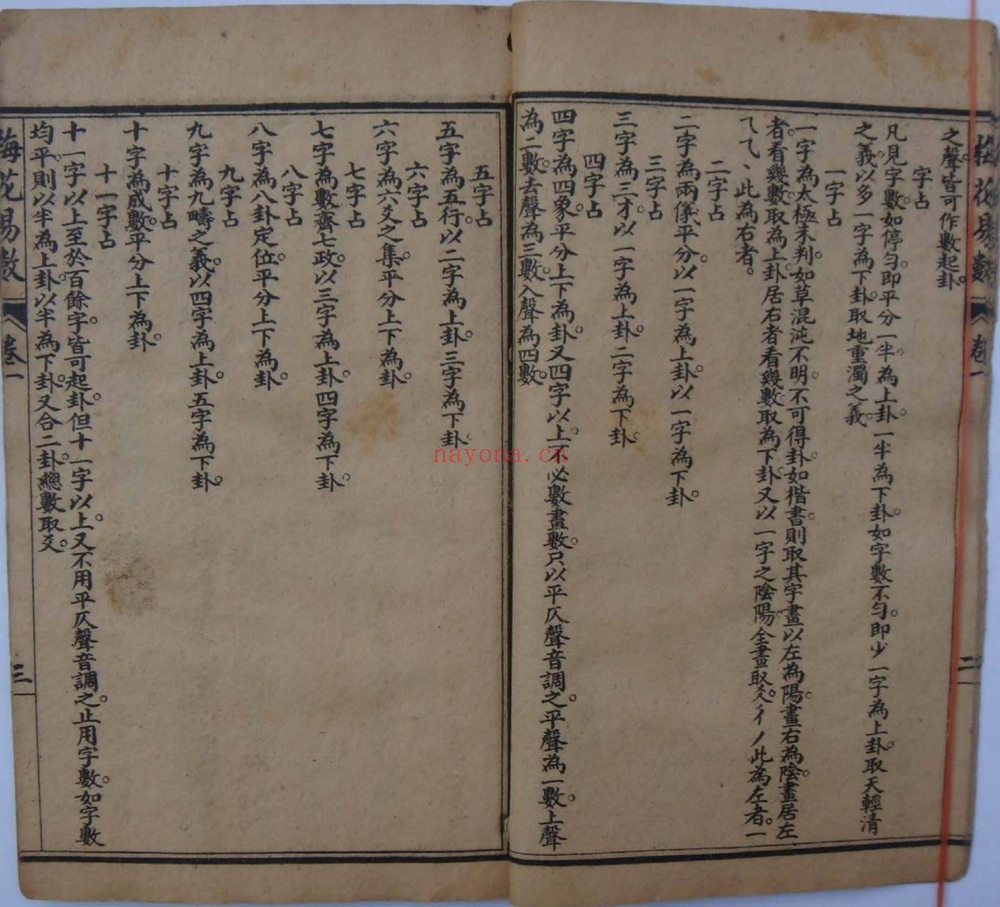 梅花易數 卷一 二
之聲皆可作數起卦。
字占
凡見字數如停勻即平分一半為上卦。一半為下卦如字數不勻。即少一字為上卦取天輕清
之義以多一字為下卦取地重濁之義
一字占
一字為太極未判。如草混沌不明。不可得卦如楷書則取其字畫以左為陽畫右為陰畫居左
者。看幾數取為上卦居右者看幾數取為下卦又以一字之陰陽全畫取爻。彳丿此為左者。一
乁乀丶此為右者。
二字占
二字為兩儀平分。以一字為上卦。以一字為下卦
三字占
三字為三才。以一字為上卦二字為下卦
四字占
四字為四象。平分上下為卦又四字以上不必數畫數只以平仄聲音調之平聲為一數上聲
為二數去聲為三數入聲為四數。
五字占
五字為五行。以二字為上卦三字為下卦。
六字占
六字為六爻之集平分上下為卦
七字占
七字為數齊七政以三字為上卦四字為下卦。
八字占
八字為八卦定位。平分上下為卦
九字占
九字為九疇之義。以四字為上卦。五字為下卦。
十字占
十字為成數平分上下為卦。
十一字占
十一字以上至於百餘字。皆可起卦但十一字以上又不用平仄聲音調之。止用字數。如字數
均平。則以半為上卦以半為下卦又合二卦總數取爻。
梅花易數 卷一 三
nayona.cn